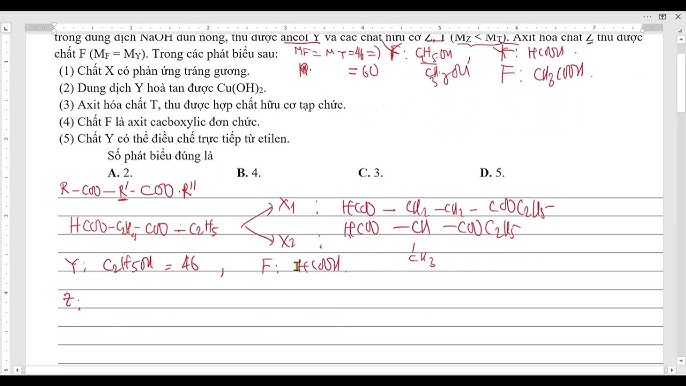 trong dung dịch NaOH đun nóng, thu được ancol Y và các chất hữu cơ Z, T (MZ < MT). Axit hóa chất Z thu được
chất F (MF = MY). Trong các phát biểu sau:
MF = MY = 46 =) Y: CH3OH F: HCOOH
(1) Chất X có phản ứng tráng gương.
= 60 F: CH3COOH.
(2) Dung dịch Y hoà tan được Cu(OH)2.
(3) Axit hóa chất T, thu được hợp chất hữu cơ tạp chức.
(4) Chất F là axit cacboxylic đơn chức.
(5) Chất Y có thể điều chế trực tiếp từ etilen.
Số phát biểu đúng là
A. 2. B. 4. C. 3. D. 5.
R-COO-R'-COO.R"
X1 : HCOO - CH2 - CH2 - COOC2H5
HCOO-C2H4-COO-C2H5
X2 : HCOO - CH - COOC2H5
CH3
Y: C2H5OH = 46 , F: HCOOH.
Z: